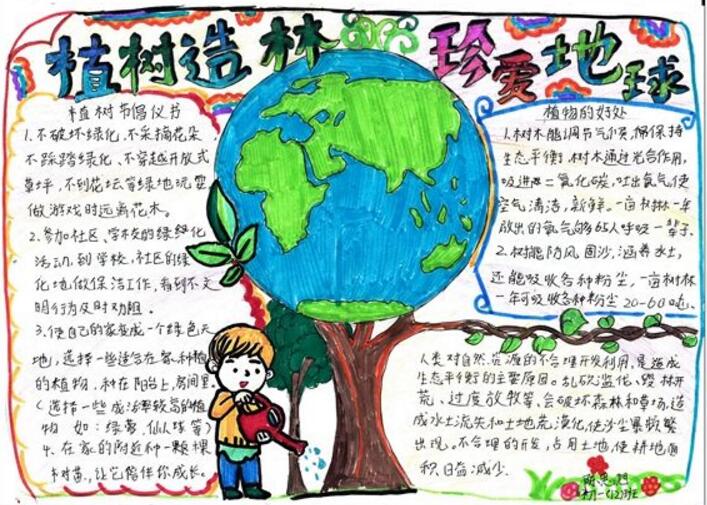 植树造林 珍爱地球
植树节倡仪书
1.不破坏绿化、不采摘花朵
不踩踏绿化、不穿越开放式
草坪，不到花坛等绿地玩耍
做游戏时远离花木。
2.参加社区、学校的绿化
活动,到学校、社区的绿
化地做保洁工作，看到不文
明行为及时劝阻。
3.使自己的家变成一个绿色天
地，选择一些适合在家种植
的植物，种在阳台上,房间里
(选择一些成活率较高的植
物 如：绿萝、仙人球等)
4、在家的附近种一颗棵
树苗，让它陪伴你成长。
植物的好处
1.树木能调节气候，保持
生态平衡,树木通过光合作用，
吸进二氧化碳，吐出氧气,使
空气清洁，新鲜。一亩树林一年
放出的氧气够65人呼吸一辈子.
2.树能防风固沙,涵养水土，
还能吸收各种粉尘，一亩树林
一年可吸收各种粉尘20-60吨。
人类对自然资源的不合理开发利用，是造成
生态平衡的主要原因。乱砍滥伐、毁林开
荒、过度放牧等，会破坏森林和草场,造
成水土流失和土地荒漠化,使沙尘暴频繁
出现。不合理的开发，占用土地,使耕地面
积日益减少.
初一(12)班